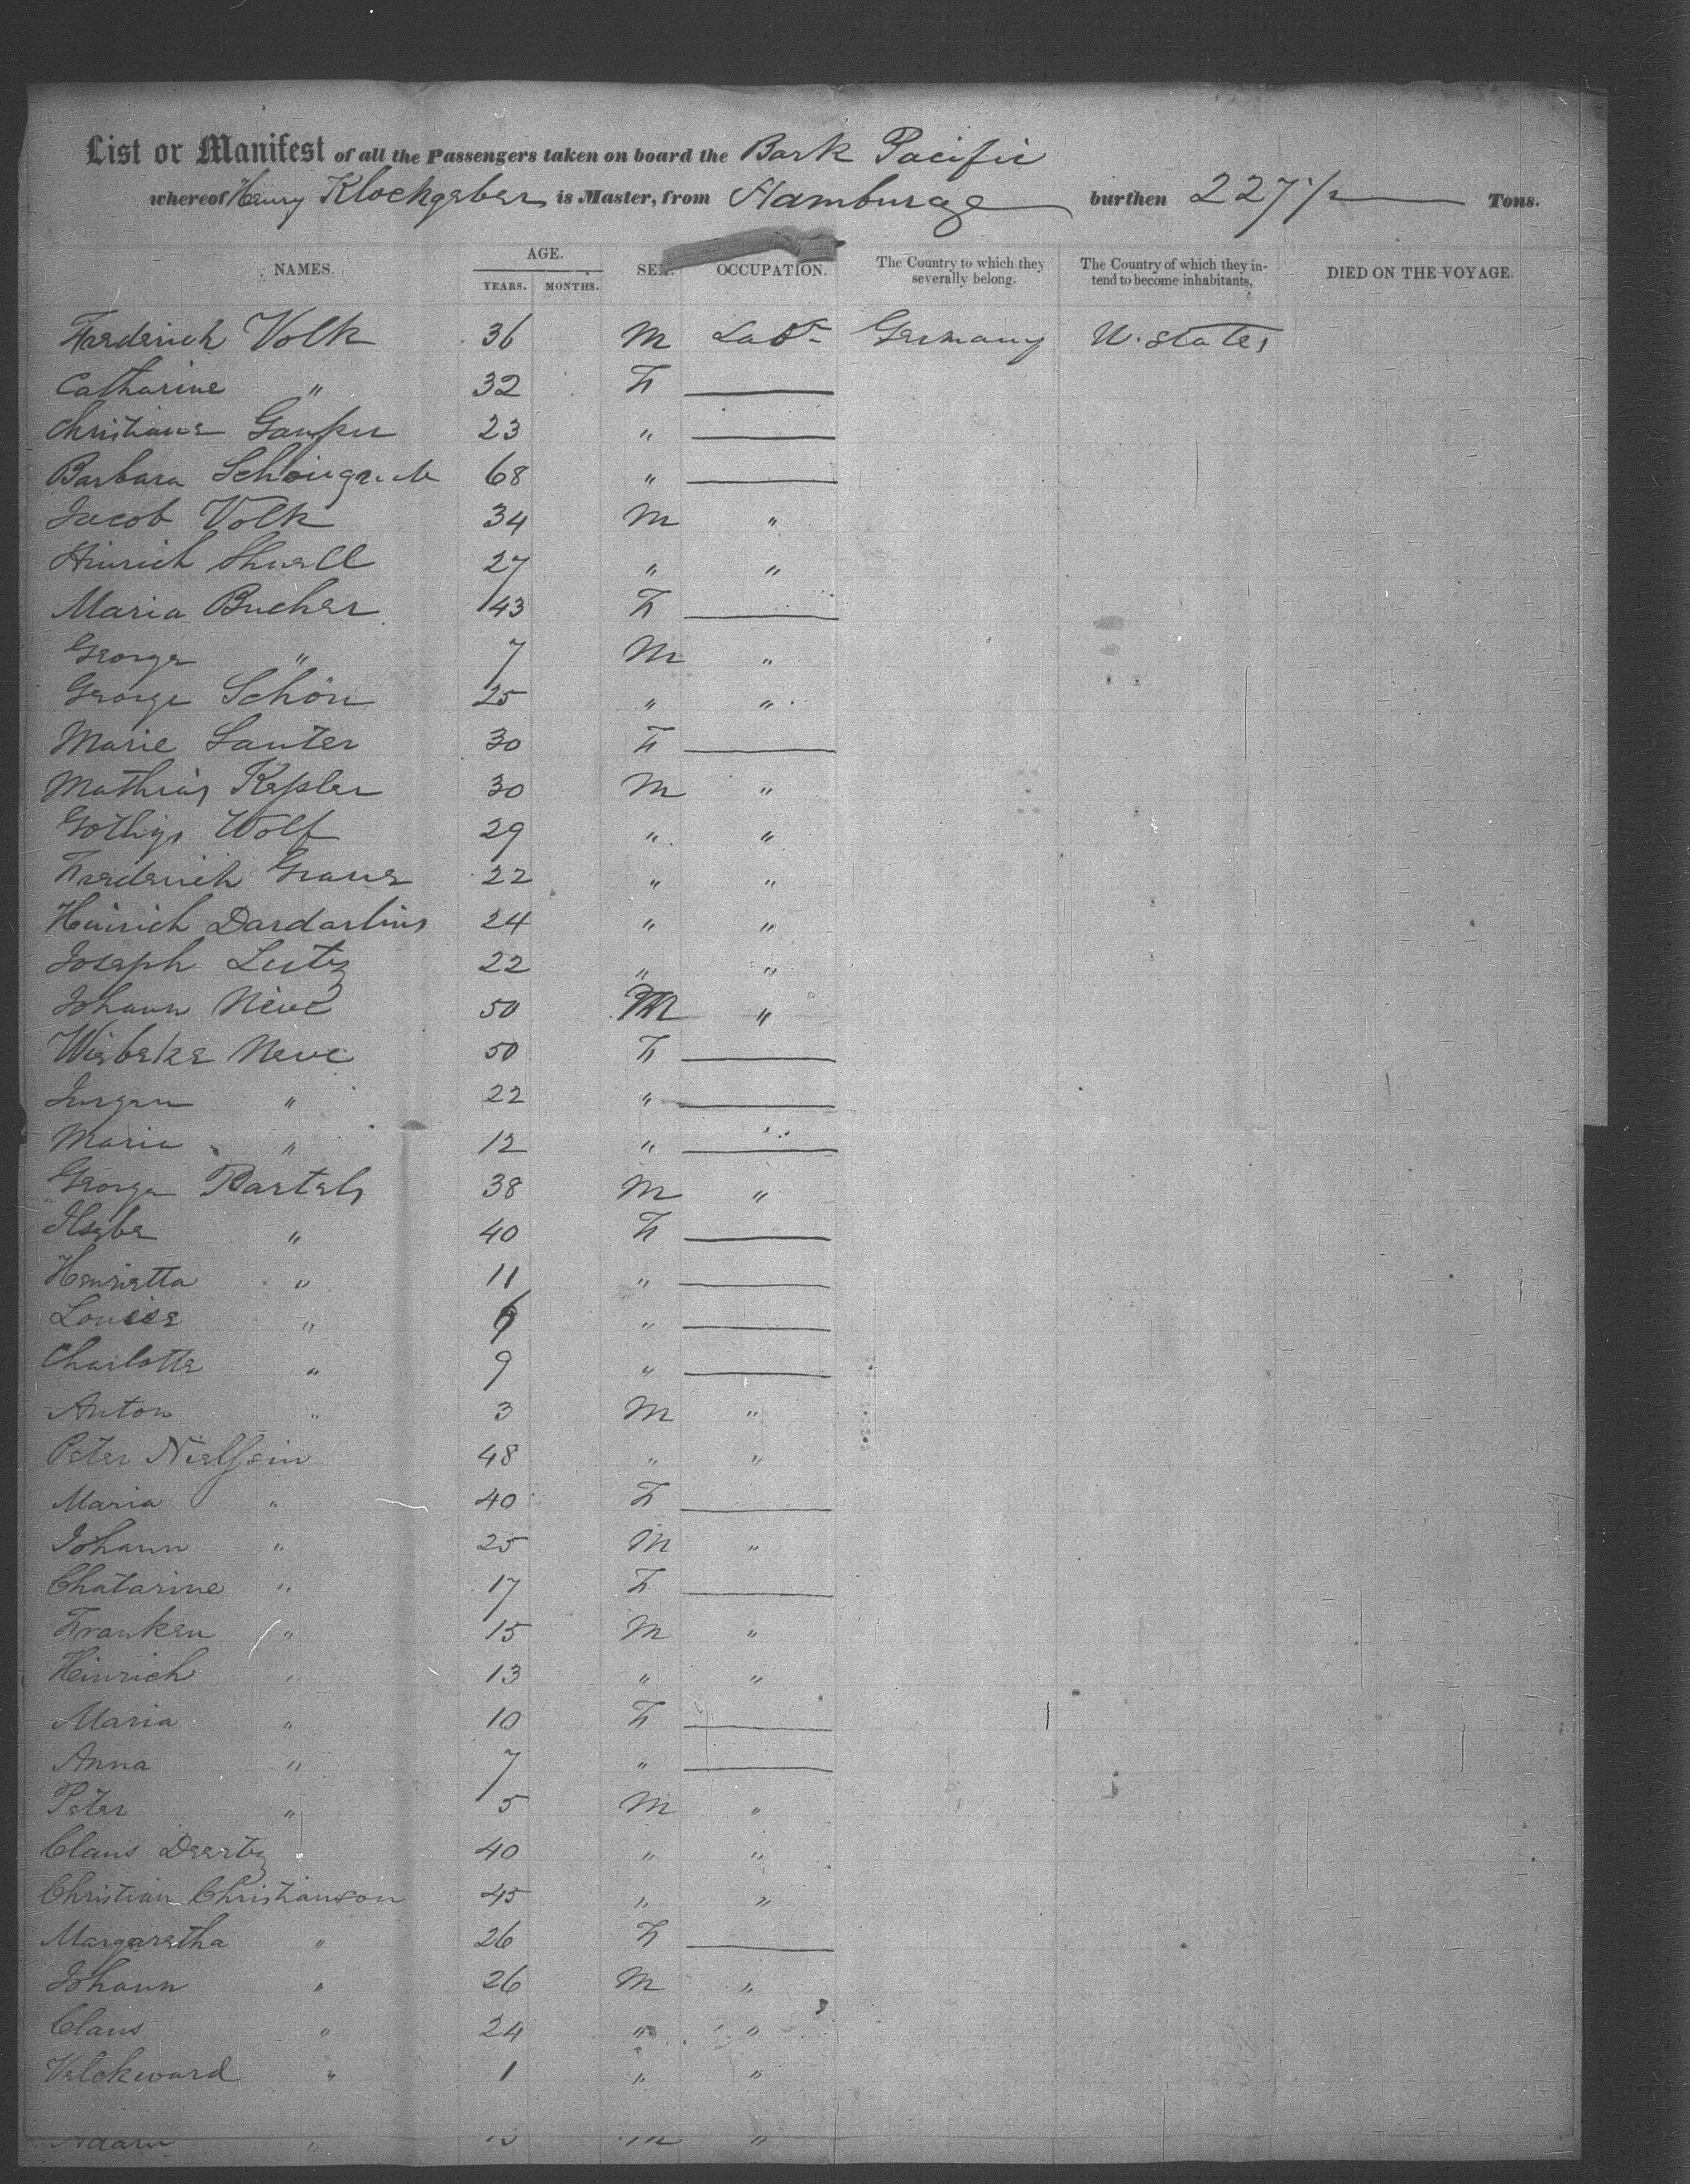 List or Manifest of all the Passengers taken on board the Bark Pacific
whereof Henry Klockgeber is Master, from Hamburg burthen 227 1/2 Tons.
NAMES. AGE. YEARS. MONTHS. SEX. OCCUPATION. The Country to which they severally belong. The Country of which they intend to become inhabitants. DIED ON THE VOYAGE.
Frederich Volk 36 M Labr Germany U. States
Catharine " 32 F
Christiane 23 "
Barbara 68 "
Jacob Volk 34 M "
Hinrich 27 " "
Maria Bucher 43 F
George " 7 M "
George Schön 25 " "
Marie Sauter 30 F
Mathias Kepler 30 M "
Wolf 29 " "
Frederich 22 " "
Heinrich 24 " "
Joseph 22 " "
Johann Neve 50 M "
Wiebeke Neve 50 F
Jurgen " 22 "
Maria " 12 "
George Bartels 38 M "
Ilsebe " 40 F
Henrietta " 11 "
Louise " "
Charlotte " 9 "
Anton " 3 M "
Peter Nielssein 48 " "
Maria " 40 F
Johann " 25 M "
Chatarine " 17 F
Franken " 15 M "
Heinrich " 13 " "
Maria " 10 F
Anna " 7 "
Peter " 5 M "
Claus Deertz 40 " "
Christian Christianson 45 " "
Margaretha " 26 F
Johann " 26 M "
Claus " 24 " "
Velckward " 1 " "
Adam " M "